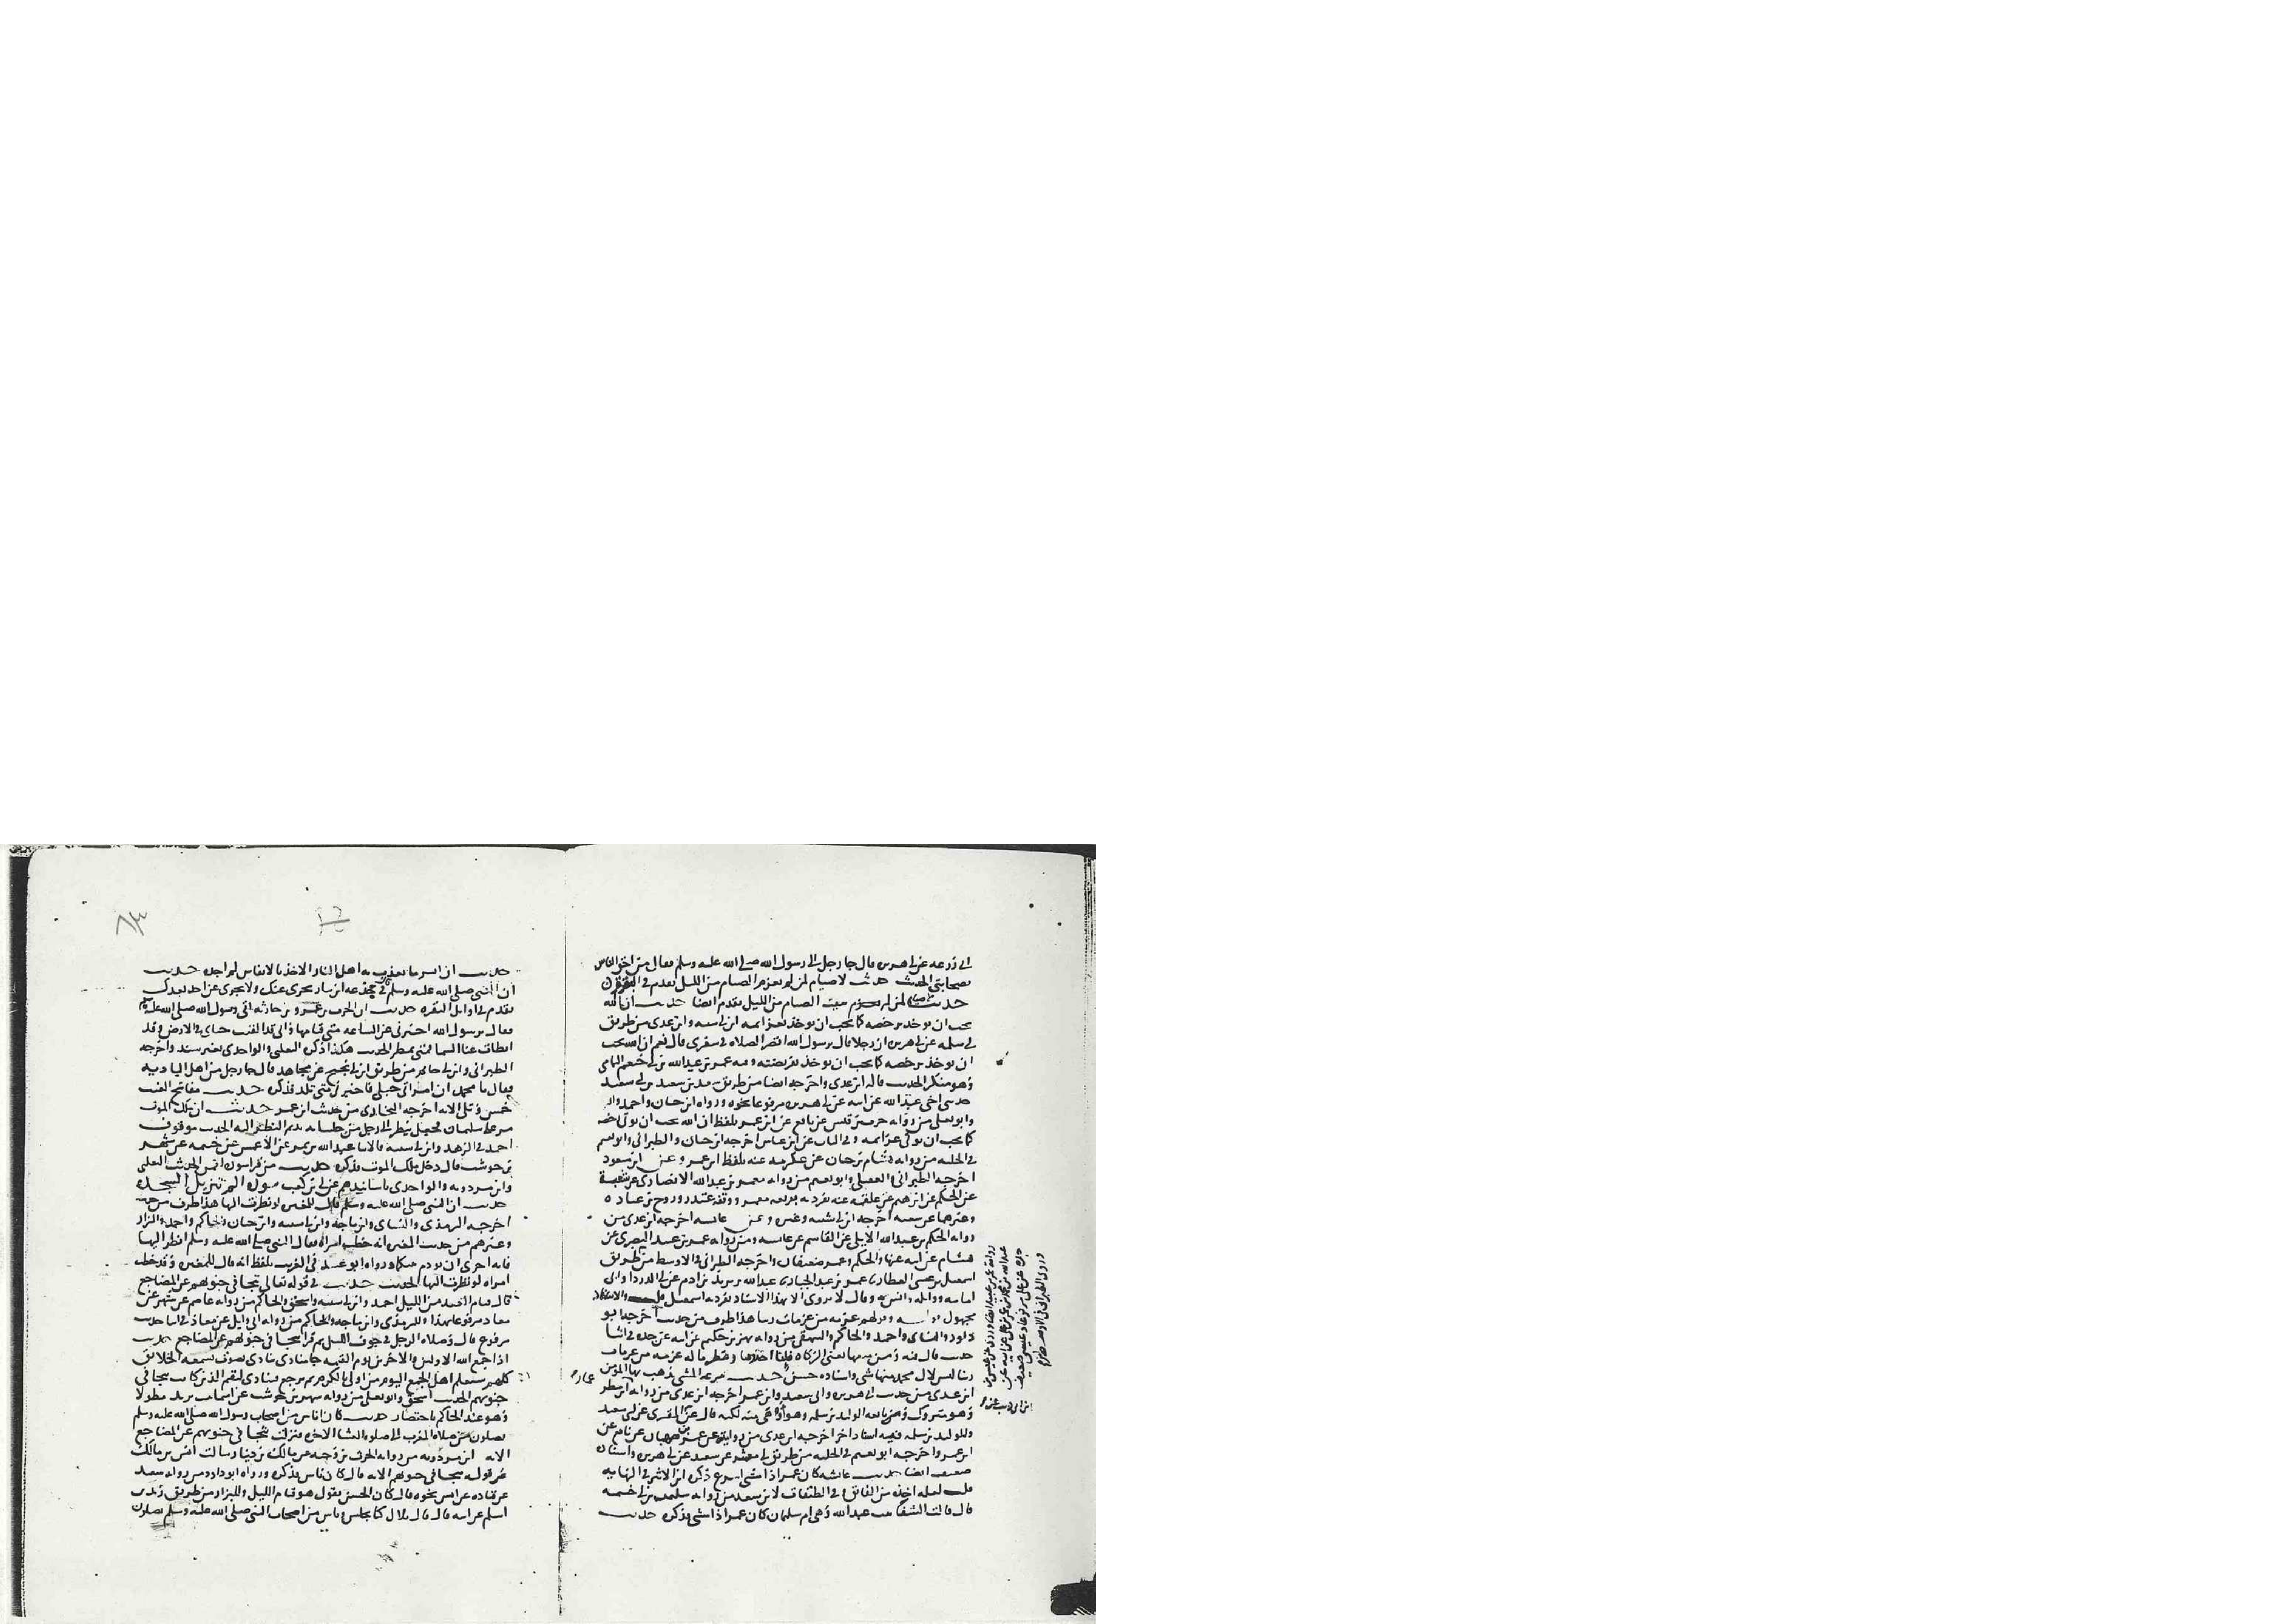 ابي زرعه عن ابي هريره قال جا رجل الى رسول الله صلى الله عليه وسلم فقال من احق الناس
بصحابتي الحديث حديث لا صيام لمن لم يعزم الصيام من الليل تقدم في البقره
حديث لا صيام لمن لم يبيت الصيام من الليل تقدم ايضا حديث ان الله
يحب ان يوخذ برخصه كما يحب ان يوخذ بعزايمه ابن ابي شيبه وابن عدي من طريق
ابي سلمه عن ابي هريره ان رجلا قال يرسول الله اقصر الصلاه في سفري قال نعم ان الله يحب
ان يوخذ برخصه كما يحب ان يوخذ بفريضته وفيه عمر بن عبد الله بن ابي خثعم اليمامي
وهو منكر الحديث قاله ابن عدي واخرجه ايضا من طريق سعد بن سعيد بن ابي سعيد
حدثني اخي عبد الله عن ابيه عن ابي هريره مرفوعا نحوه ورواه ابن حبان واحمد
وابو يعلى من روايه حرب بن قيس عن نافع عن ابن عمر بلفظ ان الله يحب ان توتى رخصه
كما يحب ان توتى عزايمه وفي الباب عن ابن عباس اخرجه ابن حبان والطبراني وابو نعيم
في الحليه من روايه هشام بن حسان عن عكرمه عنه بلفظ ابن عمر وعن ابن مسعود
اخرجه الطبراني والعقيلي وابو نعيم من روايه معمر بن عبد الله الانصاري عن شعبة
عن الحكم عن ابرهيم عن علقمه عنه تفرد برفعه معمر ووقفه غندر وروح بن عباده
وغيرهما عن شعبه اخرجه ابن ابي شيبه وغيره وعن عايشه اخرجه ابن عدي من
روايه الحكم بن عبد الله الايلي عن القاسم عن عايشه ومن روايه عمر بن عبيد البصري عن
هشام عن ابيه عنها والحكم وعمر ضعيفان واخرجه الطبراني في الاوسط من طريق
اسمعيل بن عيسى العطار عمرو بن عبد الجبار عبد الله بن يزيد بن ادم عن ابي الدردا وابي
امامه وواثله وانس به وقال لا يروى الا بهذا الاسناد تفرد به اسمعيل قلت والاسناد
مجهول قوله عزمه من عزمات ربنا هذا طرف من حديث اخرجه ابو
داود والنساي واحمد والحاكم والبيهقي من روايه بهز بن حكيم عن ابيه عن جده في اثنا
حديث قال فيه ومن منعها يعني الزكاه فانا اخذوها وشطر ماله عزمه من عزمات
ربنا ليس لال محمد منها شي واسناده حسن حديث سرعه المشي تذهب بها المومن
ابن عدي من حديث ابي هريره وابي سعيد وابن عمر اخرجه ابن عدي من روايه ابن مطر
وهو متروك ومن تابعه الوليد بن سلمه وهو اوهى منه لكنه قال عن المقبري عن ابي سعيد
وللوليد بن سلمه فيه اسناد اخر اخرجه ابن عدي من روايه عن عمر بن صهبان عن نافع عن
ابن عمر واخرجه ابو نعيم في الحليه من طريق ابي معشر عن سعيد عن ابي هريره واسناده
ضعيف ايضا حديث عايشه كان عمر اذا مشى اسرع ذكره ابن الاثير في النهايه
قلت لعله اخذه من الفايق وفي الطبقات لابن سعد من روايه سليمن بن ابي خثمه
قال قالت الشفا بنت عبد الله وهي ام سليمان كان عمر اذا مشى فذكره حديث
حديث ان ايسر ما يعذب به اهل النار الاخذ بالانفاس لم اجده حديث
ان النبي صلى الله عليه وسلم قال في جذعه ابن نيار تجزي عنك ولا تجزي عن احد بعدك
تقدم في اوايل البقره حديث ان الحرث بن عمرو بن حارثه اتى رسول الله صلى الله عليه وسلم
فقال يرسول الله اخبرني عن الساعه متى قيامها واني قد القيت حباتي في الارض وقد
ابطات عنا السما فمتى تمطر الحديث هكذا ذكره الثعلبي والواحدي بغير سند واخرجه
الطبراني وابن ابي حاتم من طريق ابن ابي نجيح عن مجاهد قال جا رجل من اهل الباديه
فقال يا محمد ان امراتي حبلى فاخبرني متى تلد فذكره حديث مفاتح الغيب
خمس وتلى الايه اخرجه البخاري من حديث ابن عمر حديث ان ملك الموت
مر على سليمان فجعل ينظر الى رجل من جلسايه يديم النظر اليه الحديث موقوف
احمد في الزهد وابن ابي شيبه قالا نا عبد الله بن نمير عن الاعمش عن خيثمه عن شهر
بن حوشب قال دخل ملك الموت فذكره حديث من قرا سوره لقمن الحديث الثعلبي
وابن مردويه والواحدي باسانيدهم عن ابي بن كعب سورة الم تنزيل السجده
حديث ان النبي صلى الله عليه وسلم قال للمغيره لو نظرت اليها هذا طرف من حديث
اخرجه الترمذي والنساي وابن ماجه وابن ابي شيبه وابن حبان والحاكم واحمد والبزار
وغيرهم من حديث المغيره انه خطب امراه فقال النبي صلى الله عليه وسلم انظر اليها
فانه احرى ان يودم بينكما ورواه ابو عبيد في الغريب بلفظ انه قال للمغيره وقد خطب
امراه لو نظرت اليها الحديث حديث في قوله تعالى تتجافى جنوبهم عن المضاجع
قال قيام العبد من الليل احمد وابن ابي شيبه واسحق والحاكم من روايه عاصم عن شهر عن
معاذ مرفوعا بهذا وللترمذي وابن ماجه والحاكم من روايه ابي وايل عن معاذ في اثنا حديث
مرفوع قال وصلاه الرجل في جوف الليل ثم قرا تتجافى جنوبهم عن المضاجع حديث
اذا جمع الله الاولين والاخرين يوم القيمه جا منادي ينادي بصوت يسمعه الخلايق
كلهم سيعلم اهل الجمع اليوم من اولى بالكرم ثم يرجع فينادي ليقم الذين كانت تتجافى
جنوبهم الحديث اسحق وابو يعلى من روايه شهر بن حوشب عن اسما بنت يزيد مطولا
وهو عند الحاكم باختصار حديث كان اناس من اصحاب رسول الله صلى الله عليه وسلم
يصلون من صلاه المغرب الى صلوه العشا الاخره فنزلت تتجافى جنوبهم عن المضاجع
الايه ابن مردويه من روايه الحرث بن وجيه عن مالك بن دينار سالت انس بن مالك
عن قوله تتجافى جنوبهم الايه قال كان ناس فذكره ورواه ابو داود من روايه سعيد
عن قتاده عن انس نحوه قال وكان الحسن يقول هو قيام الليل وللبزار من طريق زيد بن
اسلم عن ابيه قال قال بلال كنا نجلس وناس من اصحاب النبي صلى الله عليه وسلم يصلون